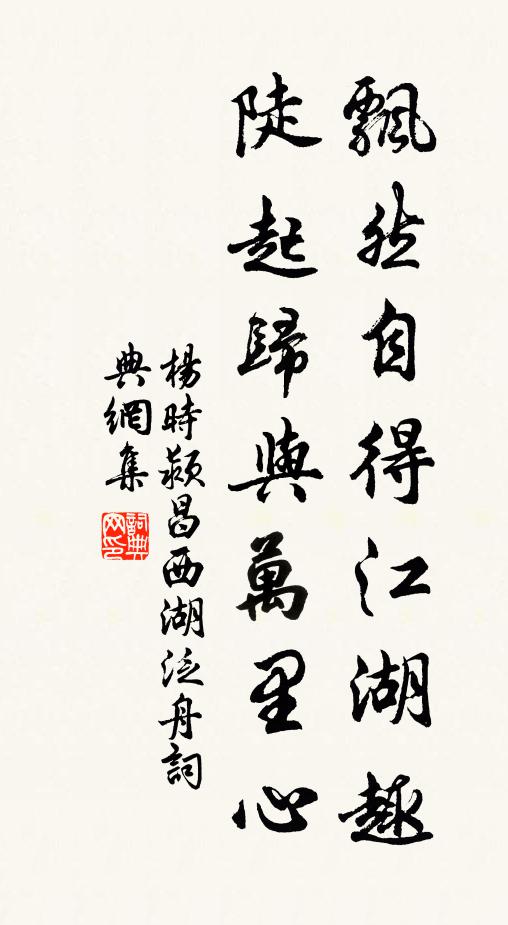 飄然自得江湖趣
陡起歸與萬里心
楊時潁昌西湖泛舟詞
典網集
詞典
網印